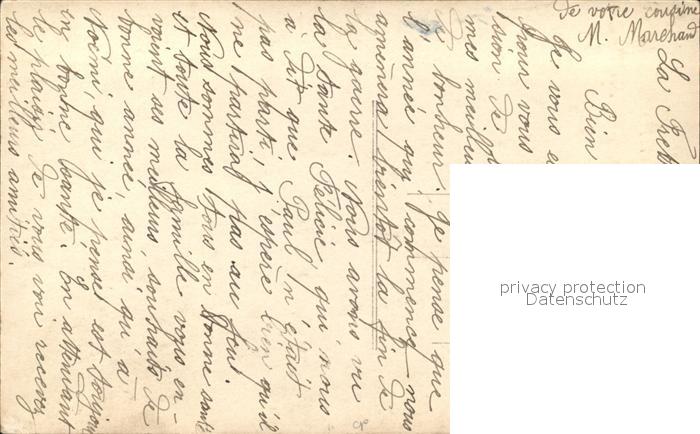 de votre cousine
M. Marchand
La Fret
Bien
Je vous é
pour vous
sion de
mes meilleu
de bonheur. Je pense que
l'année qui commence nous
amènera bientôt la fin de
la guerre. Nous avons vu
la tante Félicie qui nous
a dit que Paul n'était
pas parti, j'espère bien qu'il
ne partirat pas au feu.
Nous sommes tous en bonne santé
et toute la famille vous en-
voient ses meilleurs souhaits de
bonne année, ainsi qu'à
Noémi qui je pense est toujours
en bonne santé. En attendant
le plaisir de vous voir recevez
les meilleurs amitiés.
privacy protection
Datenschutz